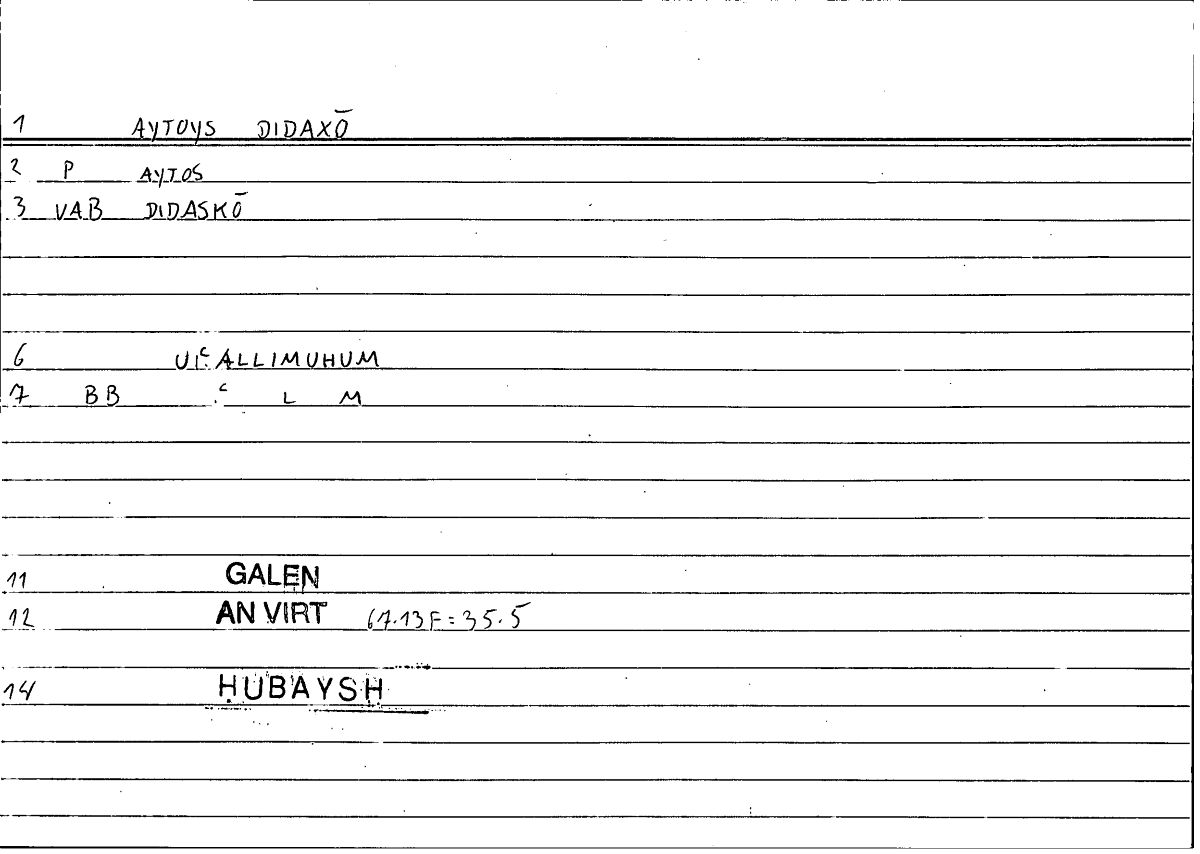 1 AYTOYS DIDAXŌ
2 P AYTOS
3 VAB DIDASKŌ
6 UʿALLIMUHUM
7 BB ʿ L M
11 GALEN
12 AN VIRT 67.13F=35.5
14 ḤUBAYSH